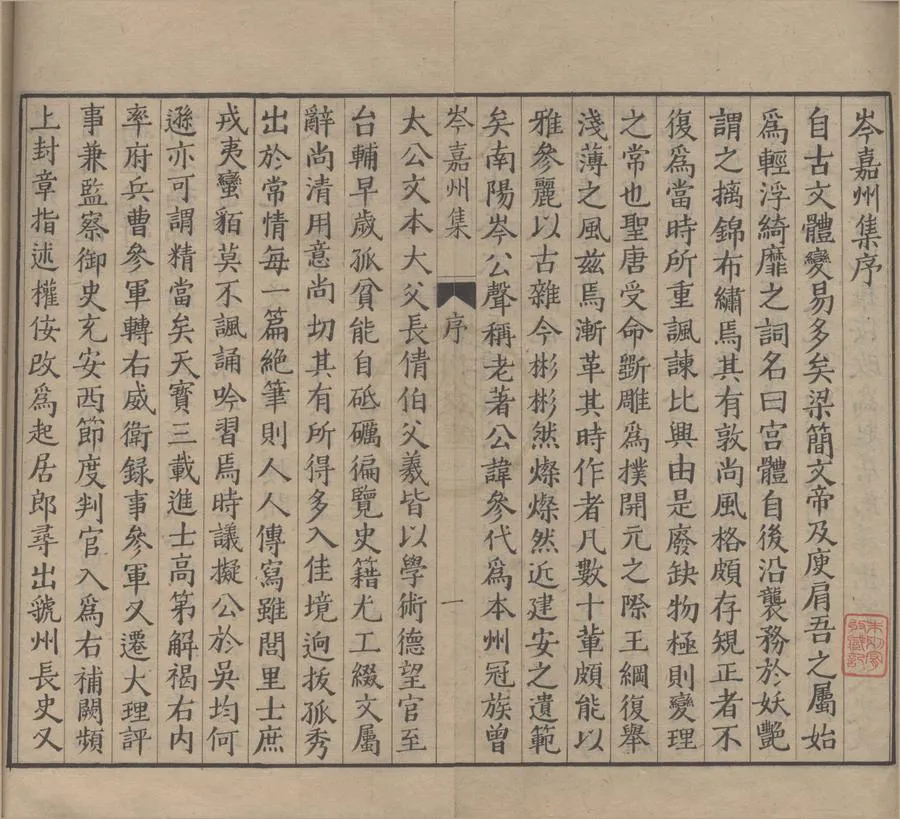 岑嘉州集序
自古文體變易多矣梁簡文帝及庾肩吾之屬始
爲輕浮綺靡之詞名曰宫體自後沿襲務於妖艷
謂之摛錦布繡焉其有敦尚風格頗存規正者不
復爲當時所重諷諫比興由是廢缺物極則變理
之常也聖唐受命斵雕爲撲開元之際王綱復舉
淺薄之風兹焉漸革其時作者凡數十輩頗能以
雅參麗以古雜今彬彬然燦燦然近建安之遺範
矣南陽岑公聲稱老著公諱參代爲本州冠族曾
岑嘉州集
序
一
太公文本大父長倩伯父羲皆以學術德望官至
台輔早歲孤貧能自砥礪徧覽史籍尤工綴文屬
辭尚清用意尚切其有所得多入佳境迥拔孤秀
出於常情每一篇絶筆則人人傳寫雖閭里士庶
戎夷蠻貊莫不諷誦吟習焉時議擬公於吳均何
遜亦可謂精當矣天寶三載進士高第解褐右内
率府兵曹參軍轉右威衛録事參軍又遷大理評
事兼監察御史充安西節度判官入爲右補闕頻
上封章指述權佞改爲起居郎尋出虢州長史又